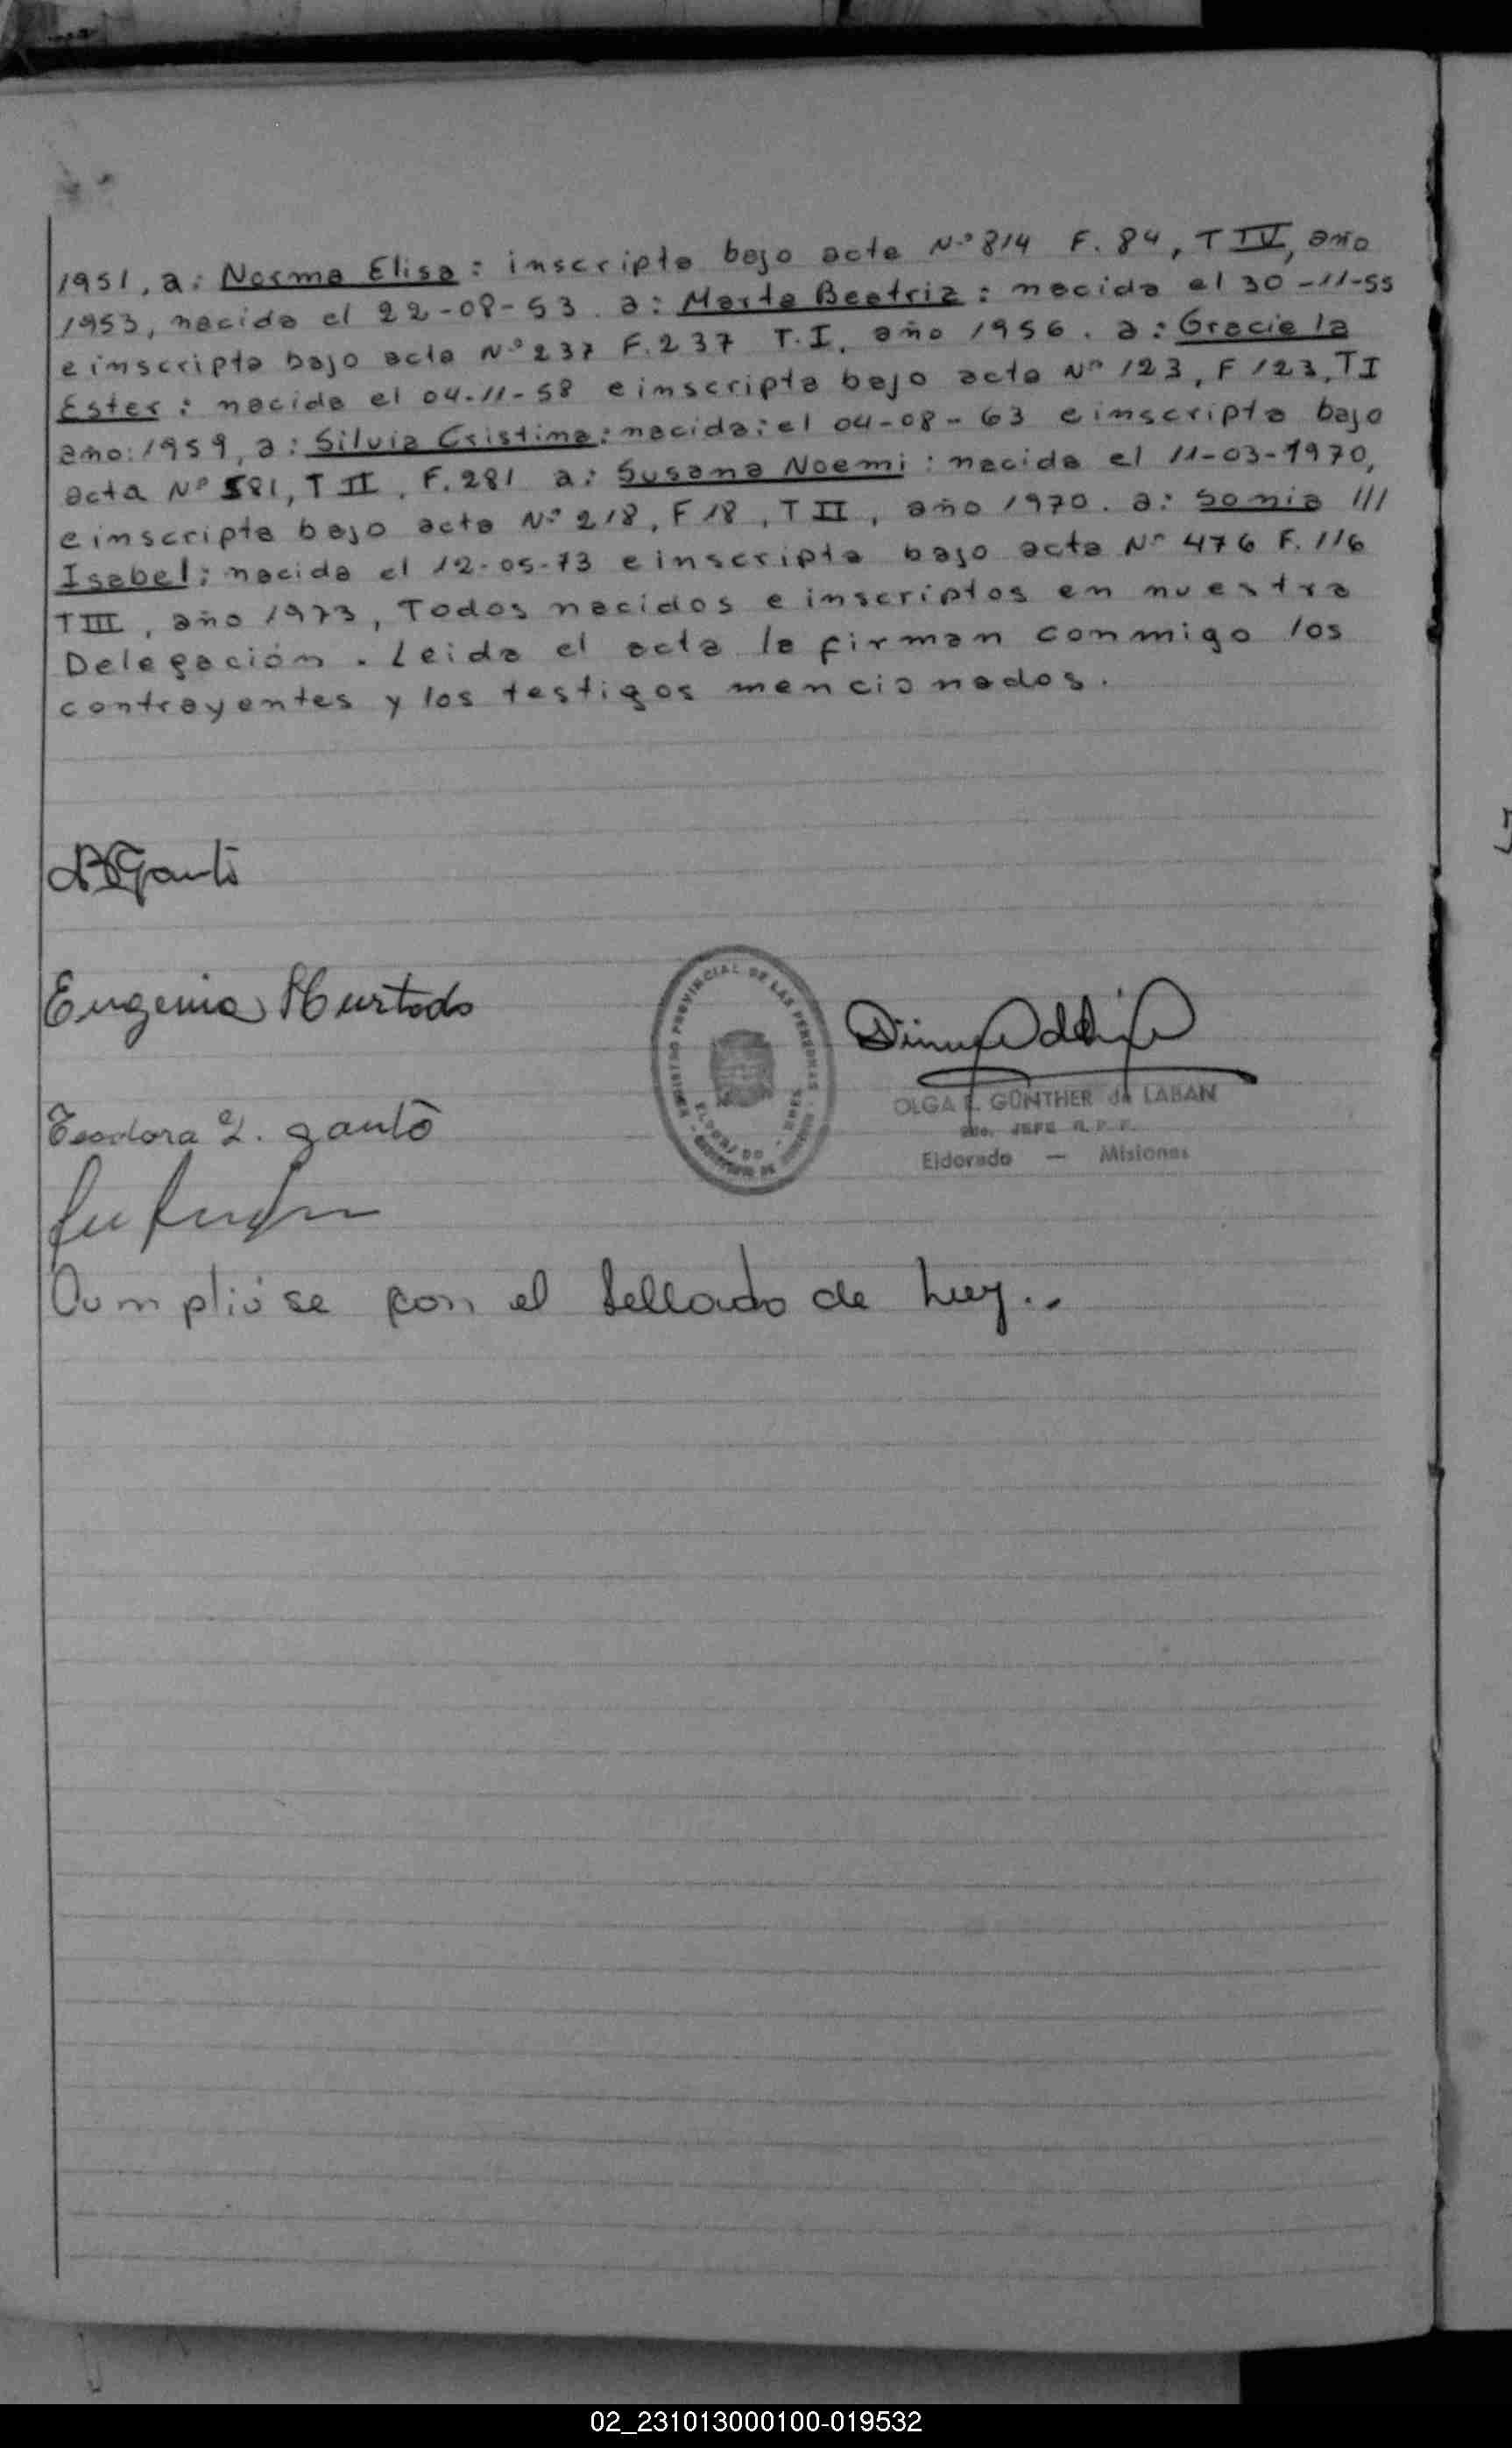 1951, a: Norma Elisa: inscripta bajo acta Nº 814 F. 84, T IV, año
1953, nacida el 22-08-53. a: Marta Beatriz: nacida el 30-11-55
e inscripta bajo acta Nº 237 F. 237 T. I. año 1956. a: Graciela
Ester: nacida el 04-11-58 e inscripta bajo acta Nº 123, F 123, T I
año: 1959, a: Silvia Cristina: nacida: el 04-08-63 e inscripta bajo
acta Nº 581, T II, F. 281 a: Susana Noemi: nacida el 11-03-1970,
e inscripta bajo acta Nº 218, F 18, T II, año 1970. a: Sonia ///
Isabel; nacida el 12-05-73 e inscripta bajo acta Nº 476 F. 116
T III, año 1973, Todos nacidos e inscriptos en nuestra
Delegación. Leida el acta la firman conmigo los
contrayentes y los testigos mencionados.
Eugenia Hurtado
REGISTRO PROVINCIAL DE LAS PERSONAS
ELDORADO
OLGA E. GÜNTHER de LABAN
JEFE R. P. P.
Eldorado — Misiones
Teodora
Cumplióse con el Sellado de Ley..
02_231013000100-019532